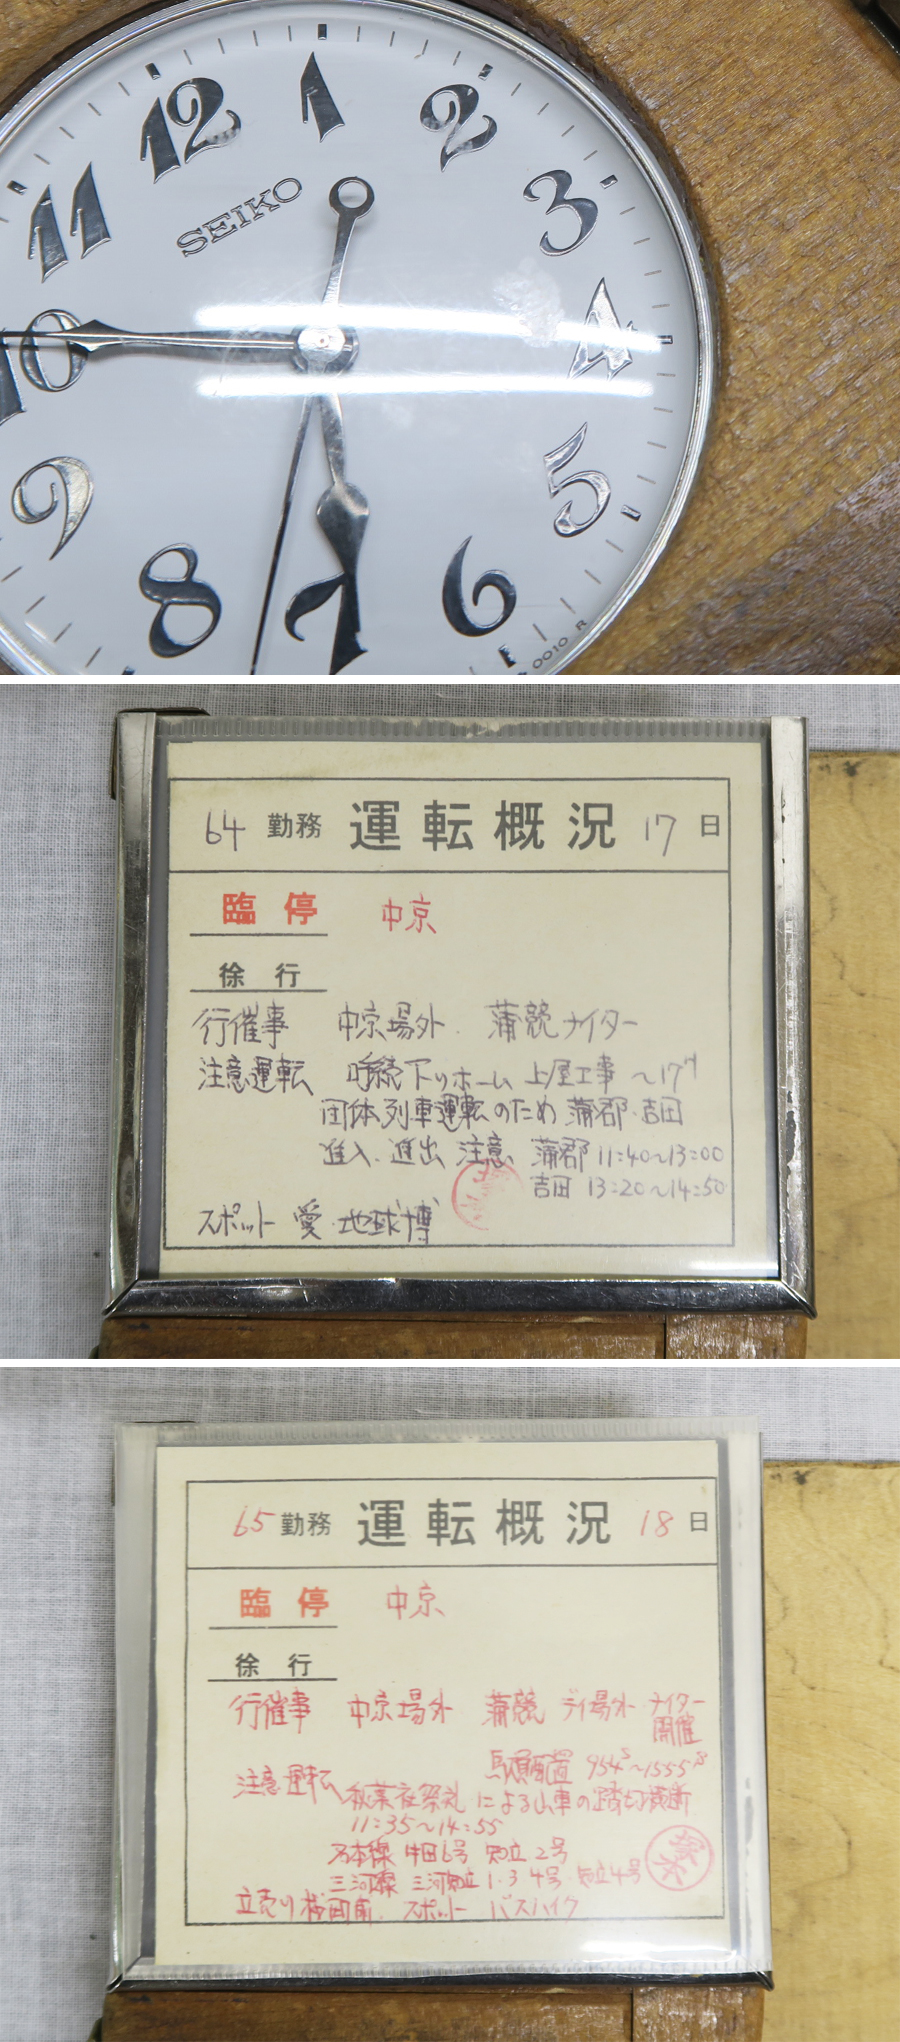 12
1
2
3
4
5
6
7
8
9
10
11
SEIKO
0010 R
64 勤務 運転概況 17 日
臨停 中京
徐行
行催事 中京場外. 蒲競ナイター
注意運転 呼続下りホーム 上屋工事 ~17H
団体列車運転のため 蒲郡・吉田
進入、進出 注意 蒲郡 11:40~13:00
吉田 13:20~14:50
スポット 愛・地球博
65 勤務 運転概況 18 日
臨停 中京
徐行
行催事 中京場外 蒲競 デイ場外 ナイター
開催
954S~1555S
注意運転 秋葉社祭礼 による山車の踏切横断
11:35~14:55
名本線 牛田6号 知立2号
三河線 三河知立 1・3 4号・知立4号
立売り スポット バスハイク